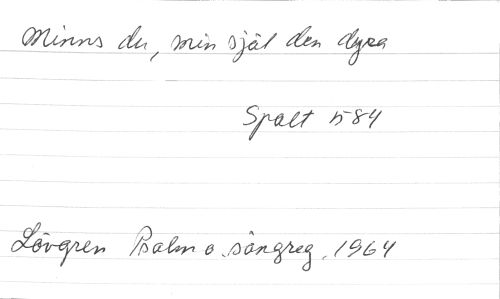 Minns du, min själ den dyra
Spalt 584
Lövgren Psalm o. sångreg. 1964